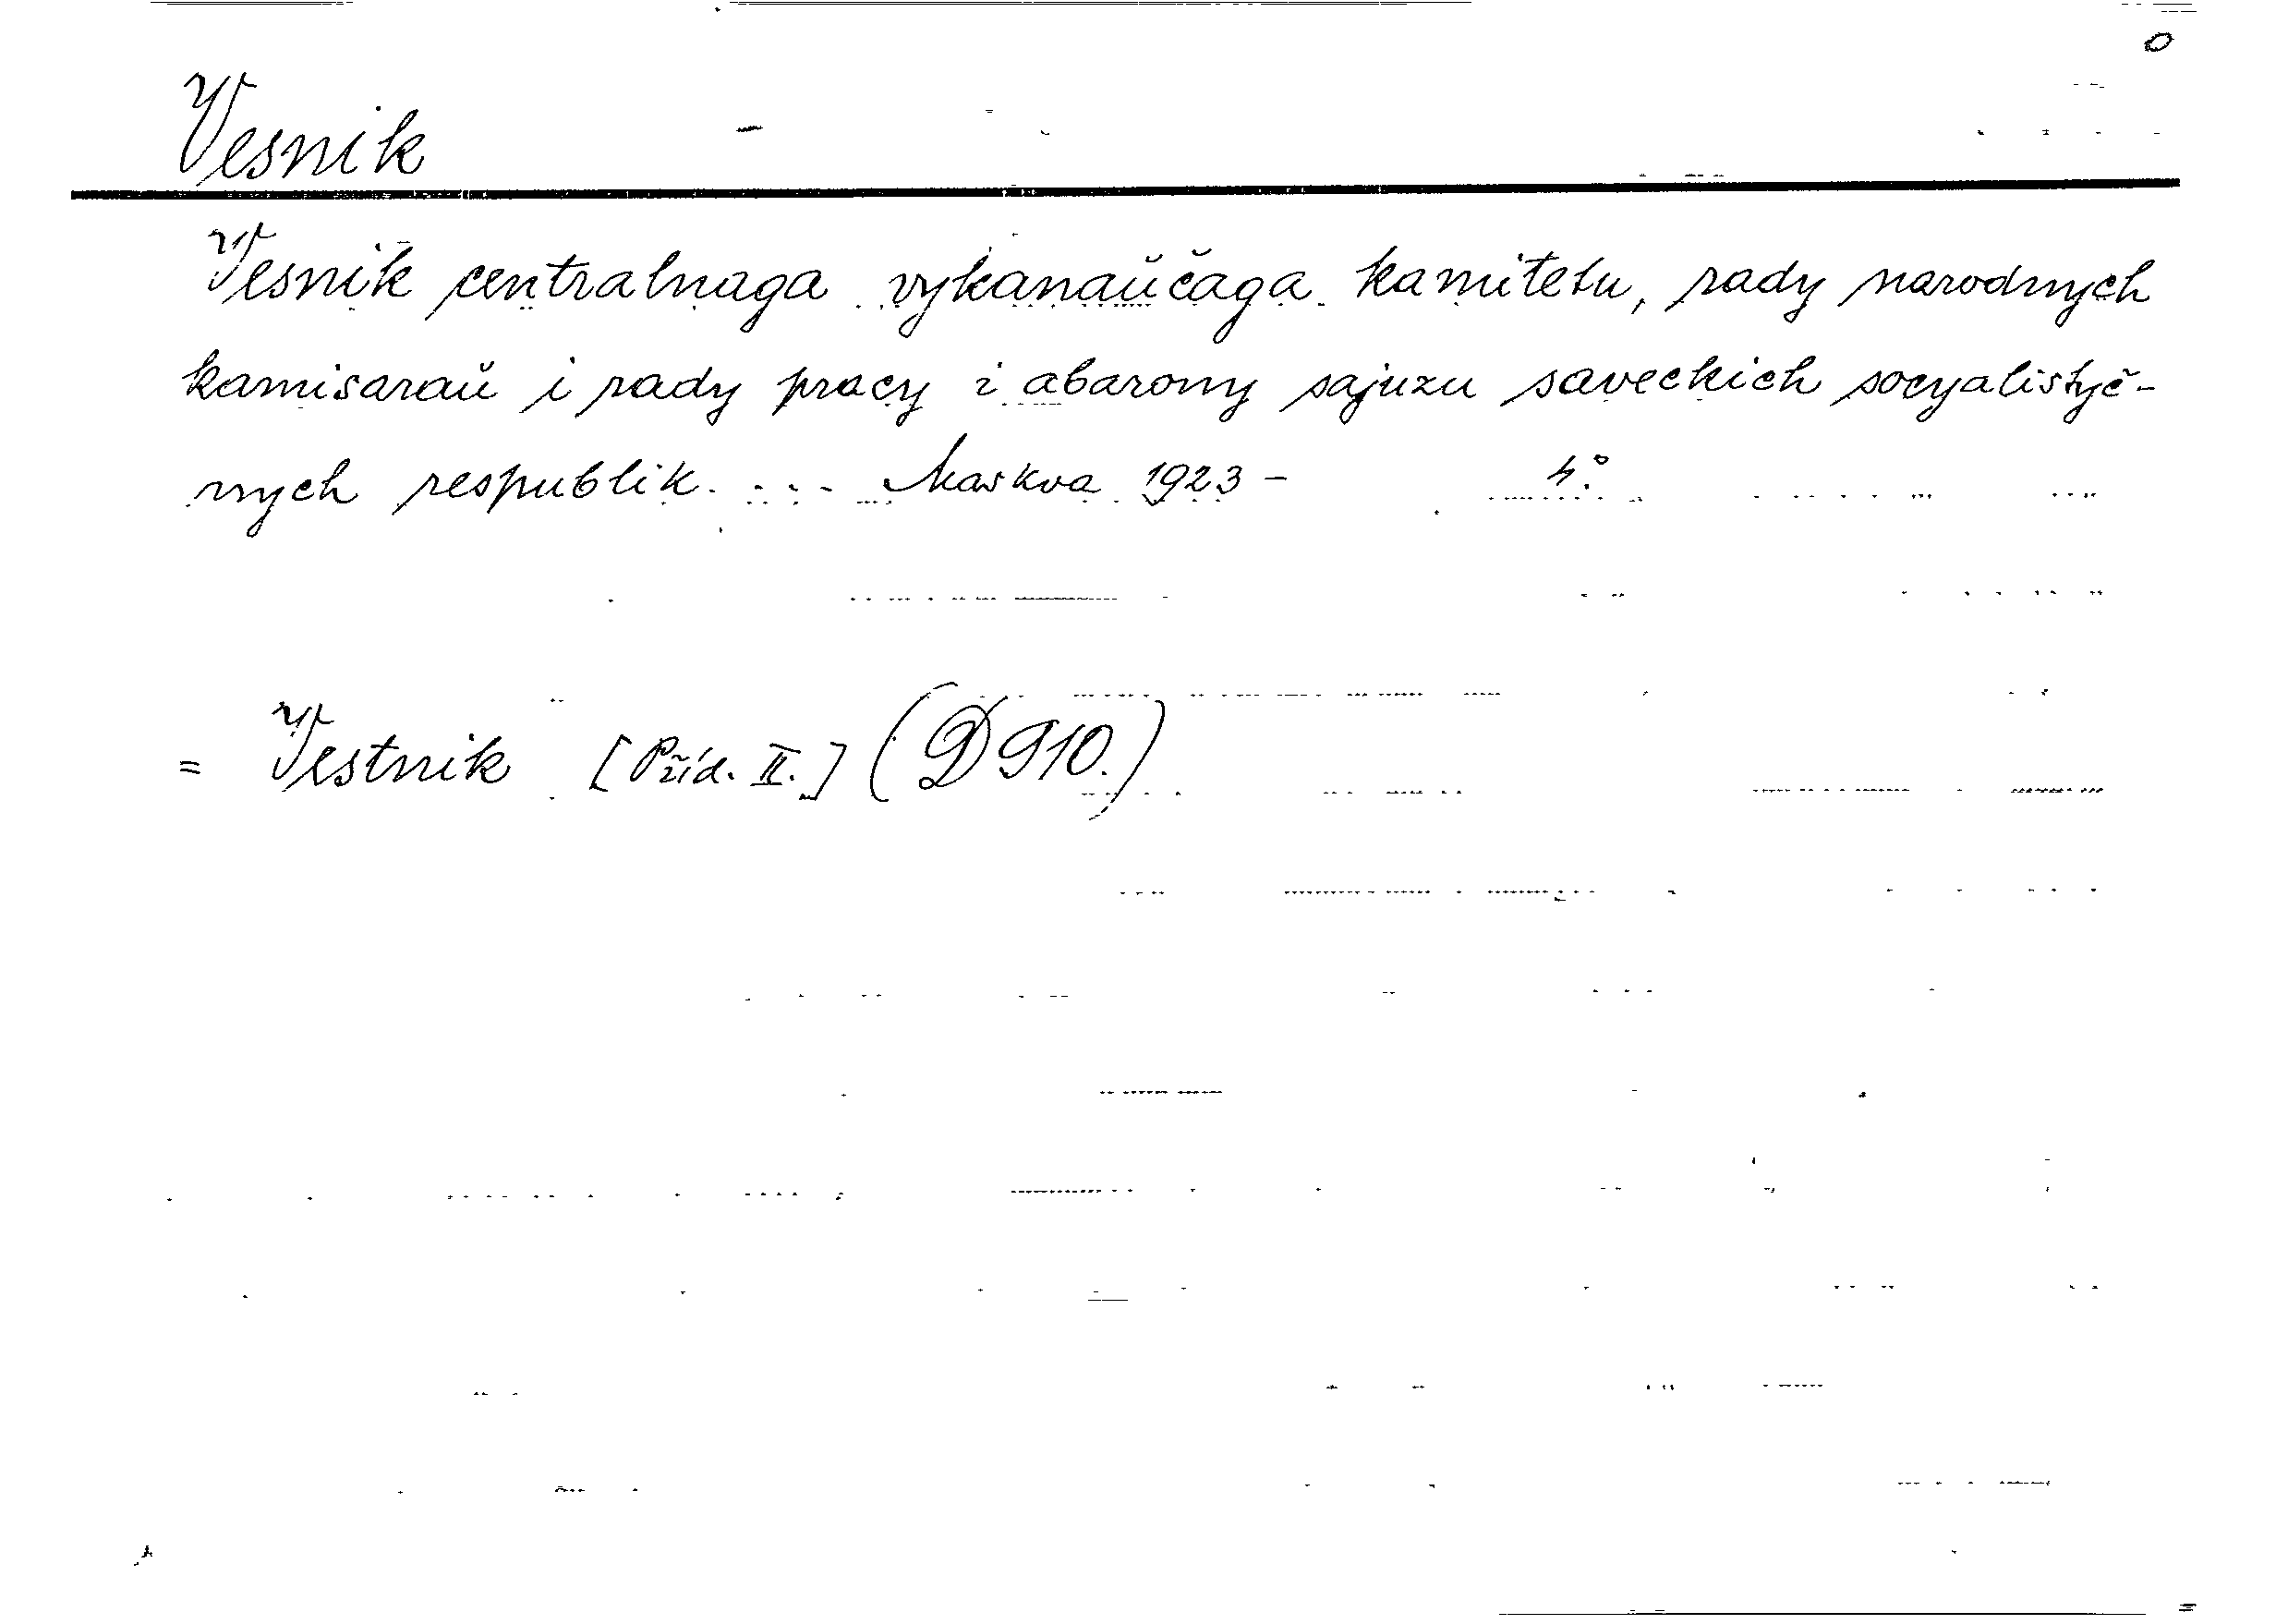 Vesnik
Vesnik centralnaga vykanaŭčaga kamitetu, rady narodnych
kamisaraŭ i rady pracy i abarony sajuzu saveckich socyalistyč-
nych respublik. ... Maskva 1923 - 4°.
= Vestnik [Příd. II.] (D 910.)